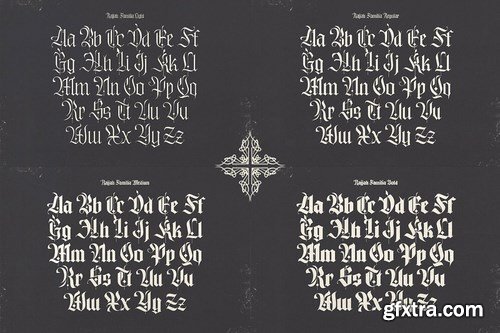 Familia Light
Aa Bb Cc Dd Ee Ff
Gg Hh Ii Jj Kk Ll
Mm Nn Oo Pp Qq
Rr Ss Tt Uu Vv
Ww Xx Yy Zz
Familia Regular
Aa Bb Cc Dd Ee Ff
Gg Hh Ii Jj Kk Ll
Mm Nn Oo Pp Qq
Rr Ss Tt Uu Vv
Ww Xx Yy Zz
Familia Medium
Aa Bb Cc Dd Ee Ff
Gg Hh Ii Jj Kk Ll
Mm Nn Oo Pp Qq
Rr Ss Tt Uu Vv
Ww Xx Yy Zz
Familia Bold
Aa Bb Cc Dd Ee Ff
Gg Hh Ii Jj Kk Ll
Mm Nn Oo Pp Qq
Rr Ss Tt Uu Vv
Ww Xx Yy Zz
gfxtra.com